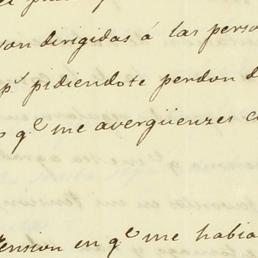 van dirigidas á las perso
pr pidiendote perdon d
qe me avergüenzes c
tension en qe me habia